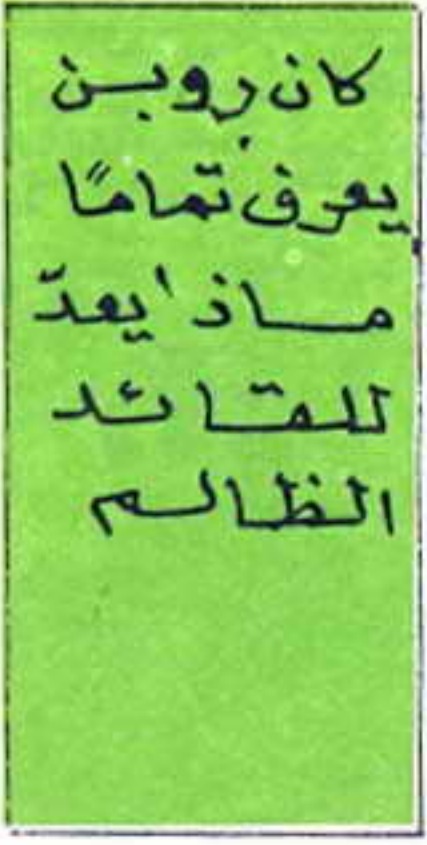 كان روبن
يعرف تمامًا
ماذا يعدّ
للقائد
الظالم